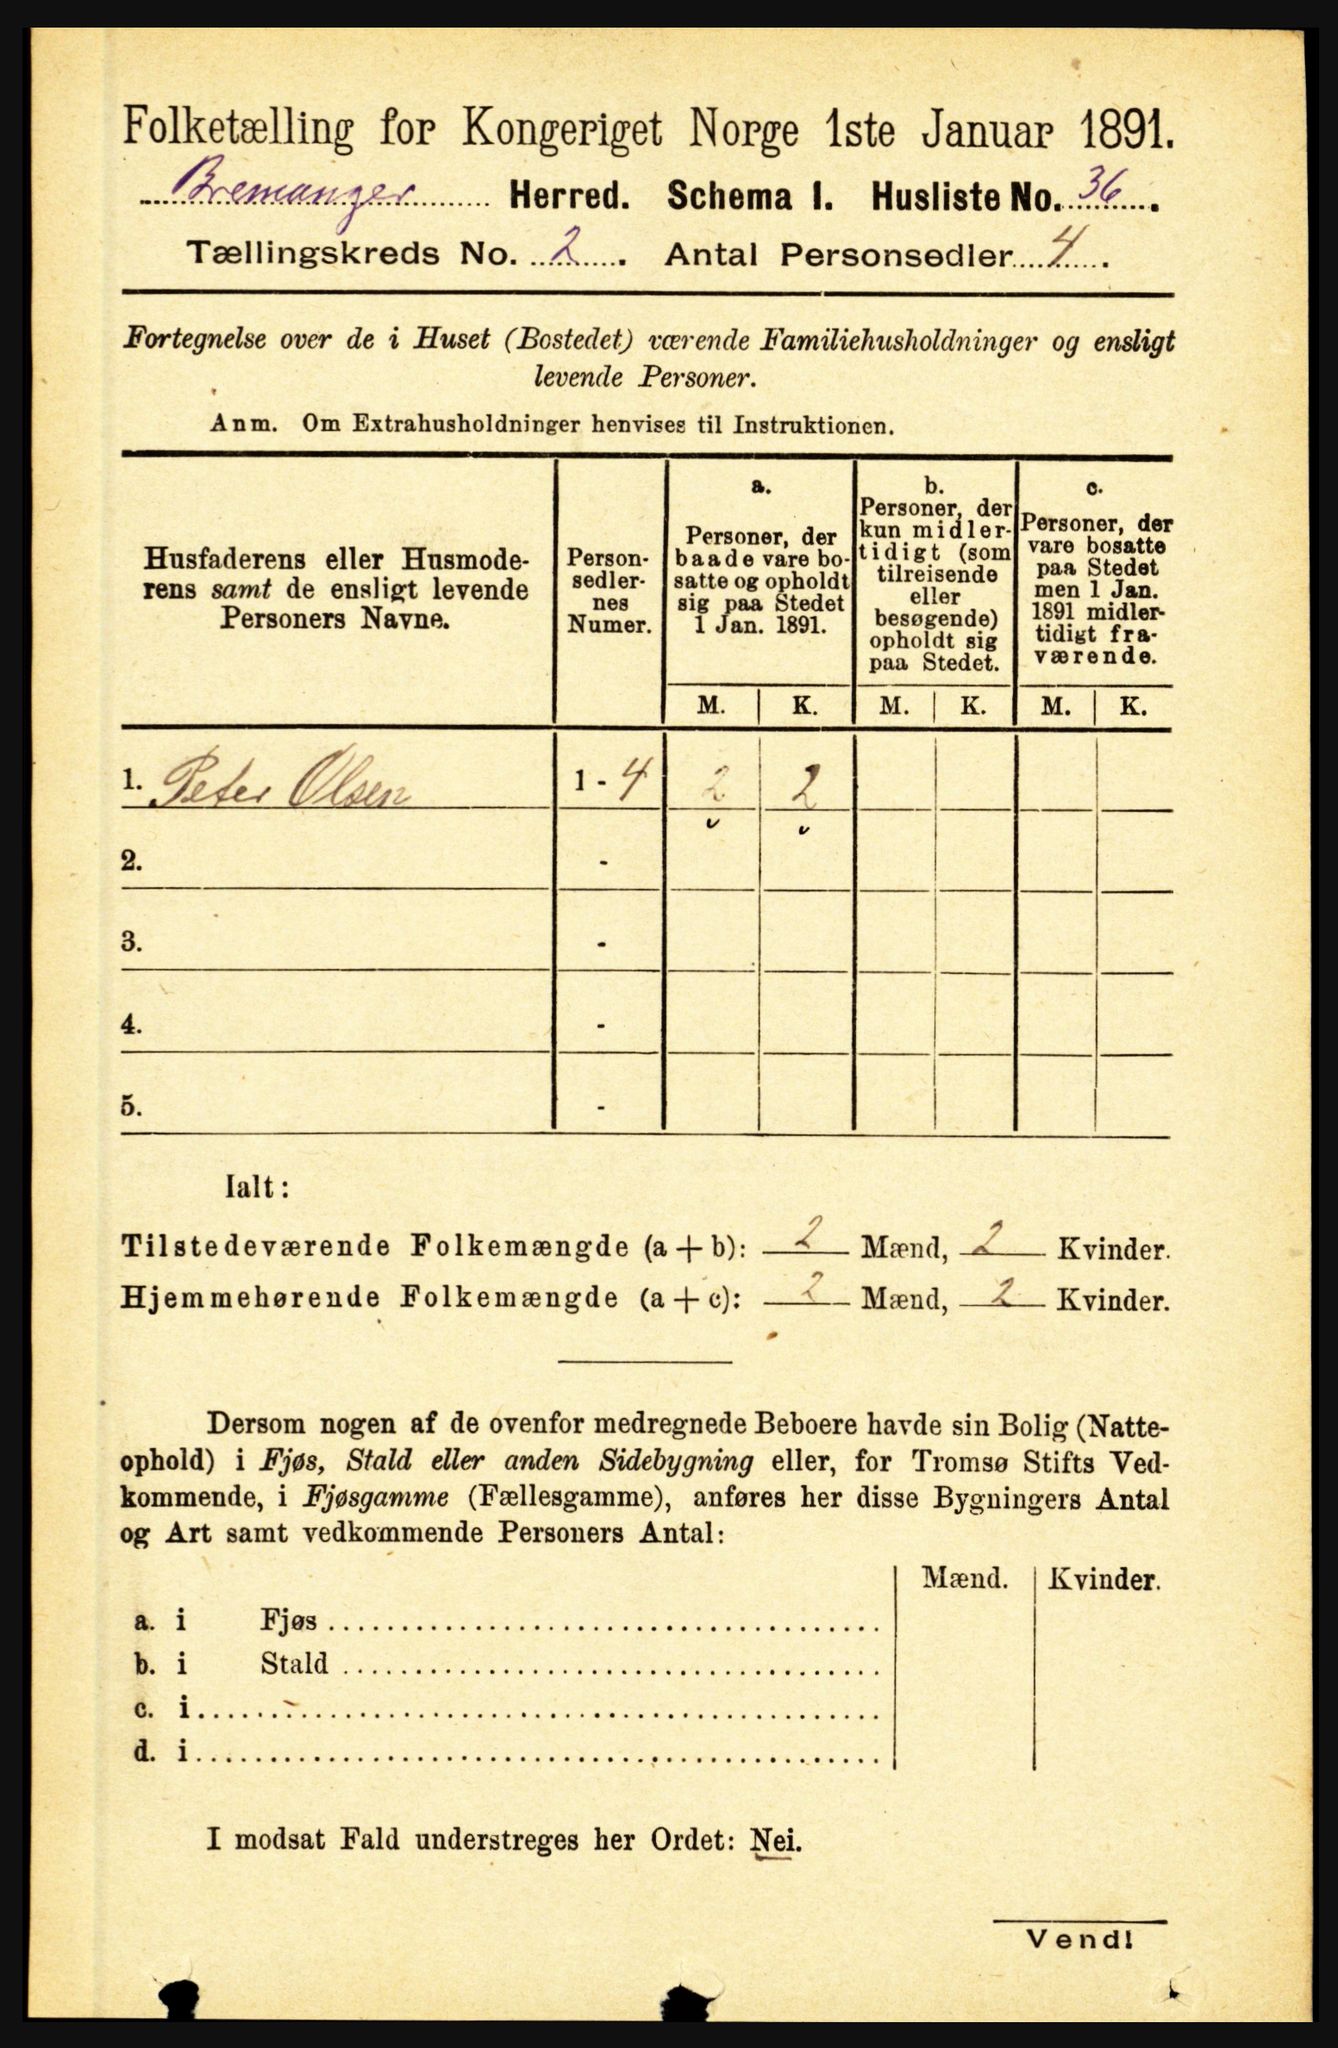 Folketælling for Kongeriget Norge 1ste Januar 1891.
Bremanger Herred. Schema I. Husliste No. 36.
Tællingskreds No. 2. Antal Personsedler 4.
Fortegnelse over de i Huset (Bostedet) værende Familiehusholdninger og ensligt
levende Personer.
Anm. Om Extrahusholdninger henvises til Instruktionen.
Husfaderens eller Husmode-
rens samt de ensligt levende
Personers Navne.
Person-
sedler-
nes
Numer.
a.
Personer, der
baade vare bo-
satte og opholdt
sig paa Stedet
1 Jan. 1891.
b.
Personer, der
kun midler-
tidigt (som
tilreisende
eller
besøgende)
opholdt sig
paa Stedet.
c.
Personer, der
vare bosatte
paa Stedet
men 1 Jan.
1891 midler-
tidigt fra-
værende.
M. K. M. K. M. K.
1. Peter Olsen 1 - 4 2 2
2. -
3. -
4. -
5. -
Ialt:
Tilstedeværende Folkemængde (a + b): 2 Mænd, 2 Kvinder.
Hjemmehørende Folkemængde (a + c): 2 Mænd, 2 Kvinder.
Dersom nogen af de ovenfor medregnede Beboere havde sin Bolig (Natte-
ophold) i Fjøs, Stald eller anden Sidebygning eller, for Tromsø Stifts Ved-
kommende, i Fjøsgamme (Fællesgamme), anføres her disse Bygningers Antal
og Art samt vedkommende Personers Antal:
Mænd. Kvinder.
a. i Fjøs
b. i Stald
c. i
d. i
I modsat Fald understreges her Ordet: Nei.
Vend!